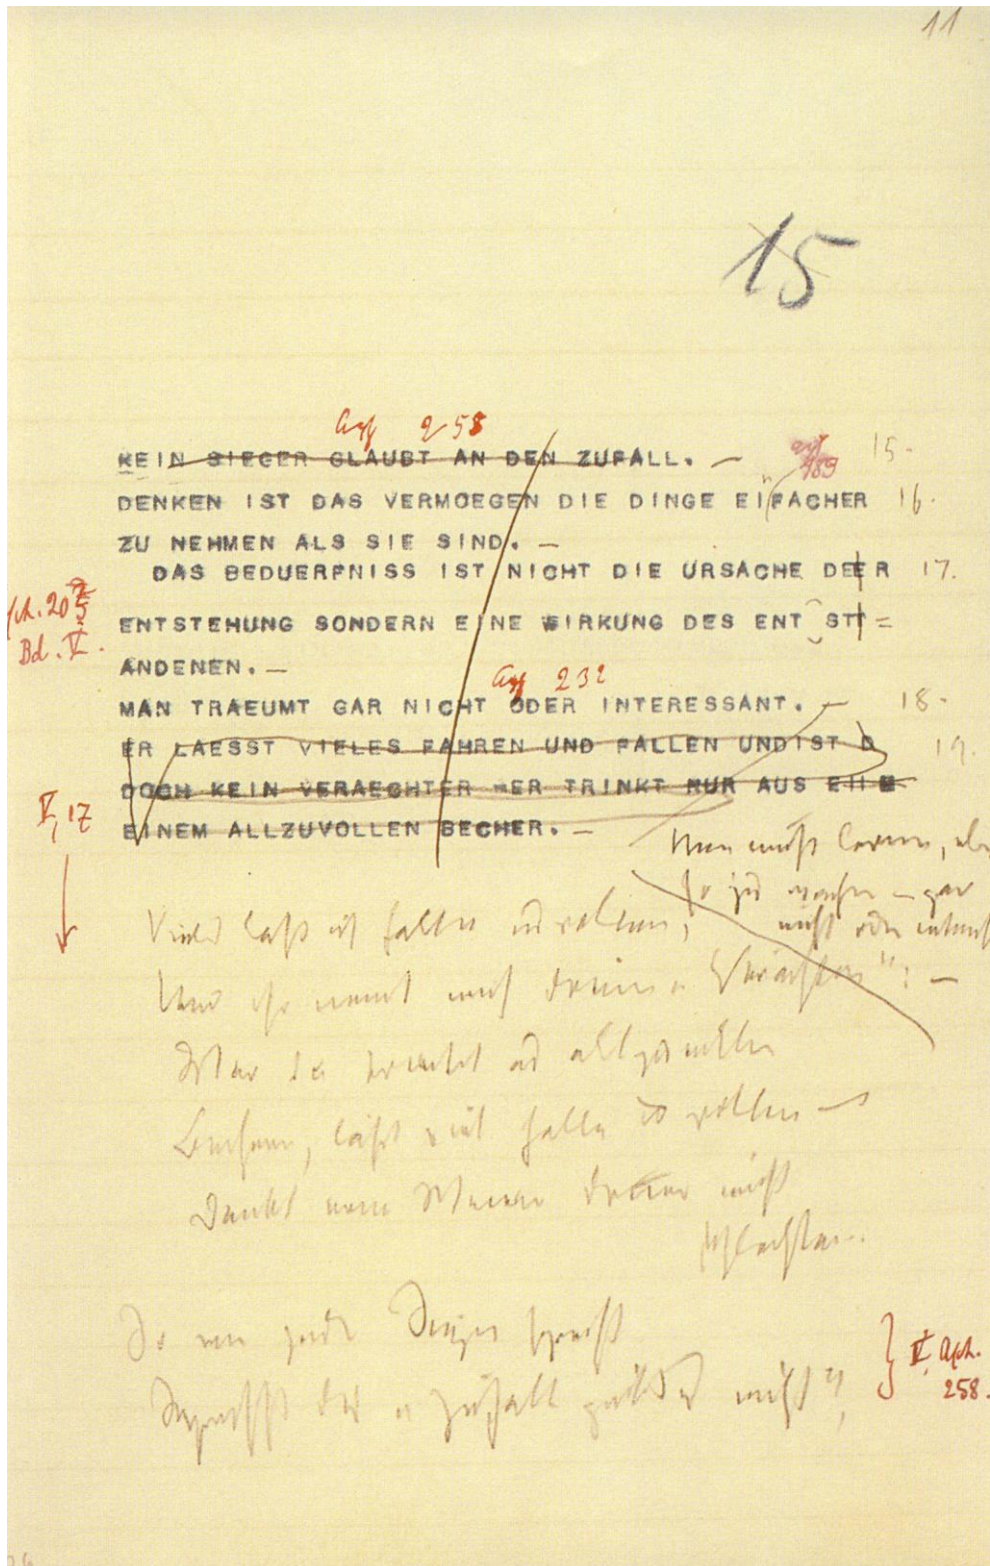 11
15
Aph 258
KEIN SIEGER GLAUBT AN DEN ZUFALL. — 15.
189
DENKEN IST DAS VERMOEGEN DIE DINGE EIFACHER 16.
ZU NEHMEN ALS SIE SIND. —
DAS BEDUERFNISS IST NICHT DIE URSACHE DEER 17.
Aph. 205
Bd. V.
ENTSTEHUNG SONDERN EINE WIRKUNG DES ENT STT =
ANDENEN. —
Aph 232
MAN TRAEUMT GAR NICHT ODER INTERESSANT. — 18.
ER LAESST VIELES FAHREN UND FALLEN UNDIST D 19.
DOCH KEIN VERAECHTER WER TRINKT NUR AUS
V, 17
EINEM ALLZUVOLLEN BECHER. —
Man muß lernen,
so zu wachen — gar
nicht oder interess
Viel laß ich fallen und rollen,
Und ihr nennt mich drum „Verächter": —
Wer da trinkt aus allzuvollen
Bechern, läßt viel fallen und rollen —
Denkt vom Weine drum nicht
schlechter.
nicht",
V, Aph.
258.